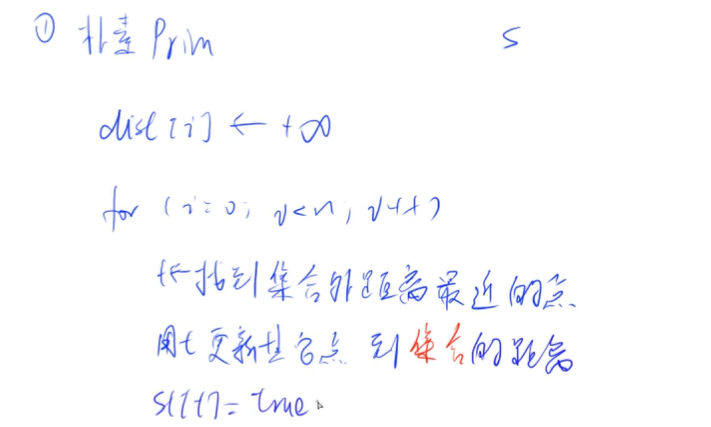 ① 朴素Prim
S
dist[i] ← +∞
for (i=0; i<n; i++)
t←找到集合外距离最近的点
用t更新其它点到集合的距离
st[t]=true